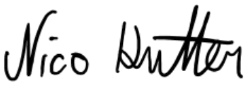 Nico Hutter